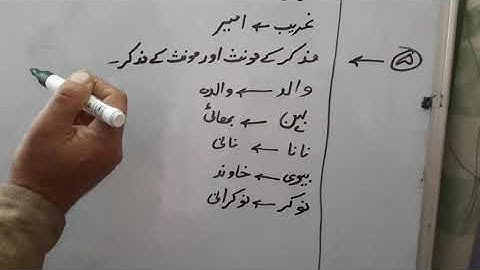 غریب ← امیر
۵ ← مذکر کے مونث اور مونث کے مذکر۔
والد ← والدہ
بہن ← بھائی
نانا ← نانی
بیوی ← خاوند
نوکر ← نوکرانی